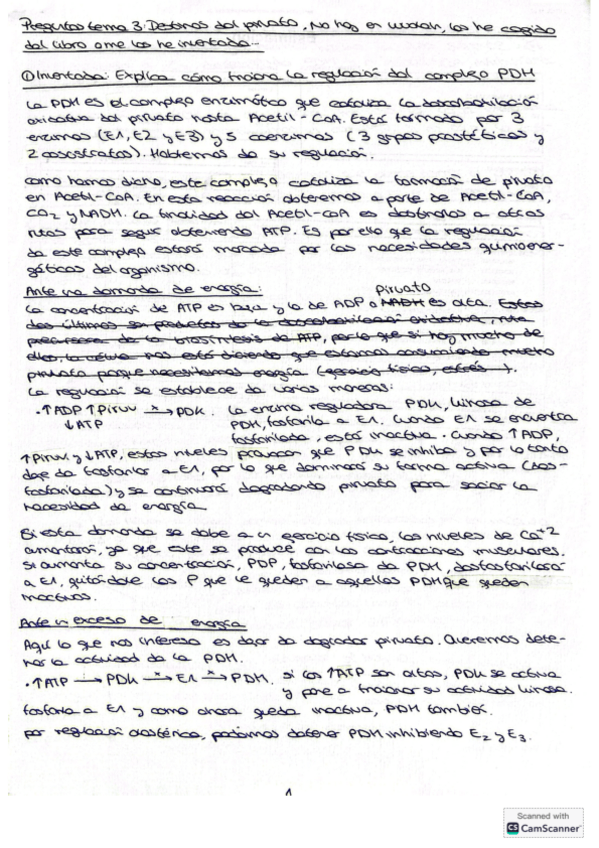 Preguntas tema 3: Destinos del piruvato, No hay en wuolah, las he cogido
del libro o me las he inventado...
① Inventada: Explica cómo funciona la regulación del complejo PDH
La PDH es el complejo enzimático que cataliza la descarboxilación
oxidativa del piruvato hasta Acetil-CoA. Está formado por 3
enzimas (E1, E2 y E3) y 5 coenzimas (3 grupos prostéticos y
2 cosustratos). Hablemos de su regulación.
como hemos dicho, este complejo cataliza la formación de piruvato
en Acetil-CoA. En esta reacción obtenemos a parte de Acetil-CoA,
CO2 y NADH. La finalidad del Acetil-CoA es destinarlo a otras
rutas para seguir obteniendo ATP. Es por ello que la regulación
de este complejo estará marcada por las necesidades quimioener-
géticas del organismo.
Ante una demanda de energía:
piruvato
La concentración de ATP es baja y la de ADP o NADH es alta. Estos
dos últimos son productos de la descarboxilación oxidativa, ruta
precursora de la biosíntesis de ATP, por lo que si hay mucho de
ellos, la célula nos está diciendo que estamos consumiendo mucho
piruvato porque necesitamos energía (ejercicio físico, estrés...).
La regulación se establece de varias maneras:
· ↑ADP ↑Piruv -x→ PDK. La enzima reguladora PDK, kinasa de
↓ATP PDH, fosforila a E1. Cuando E1 se encuentra
fosforilada, está inactiva. Cuando ↑ADP,
↑Piruv y ↓ATP, estos niveles provocan que PDK se inhiba y por lo tanto
deje de fosforilar a E1, por lo que dominará su forma activa (des-
fosforilada) y se continuará degradando piruvato para saciar la
necesidad de energía
Si esta demanda se debe a un ejercicio físico, los niveles de Ca+2
aumentarán, ya que este se produce con las contracciones musculares.
Si aumenta su concentración, PDP, fosfatasa de PDH, desfosforilará
a E1, quitándole los P que le queden a aquellos PDH que queden
inactivos.
Ante un exceso de energía
Aquí lo que nos interesa es dejar de degradar piruvato. Queremos dete-
ner la actividad de la PDH.
· ↑ATP → PDK -x→ E1 -x→ PDH. si los ↑ATP son altos, PDK se activa
y pone a funcionar su actividad kinasa.
fosforila a E1 y como ahora queda inactiva, PDH también.
por regulación alostérica, podríamos detener PDH inhibiendo E2 y E3.
1
Scanned with
CS CamScanner